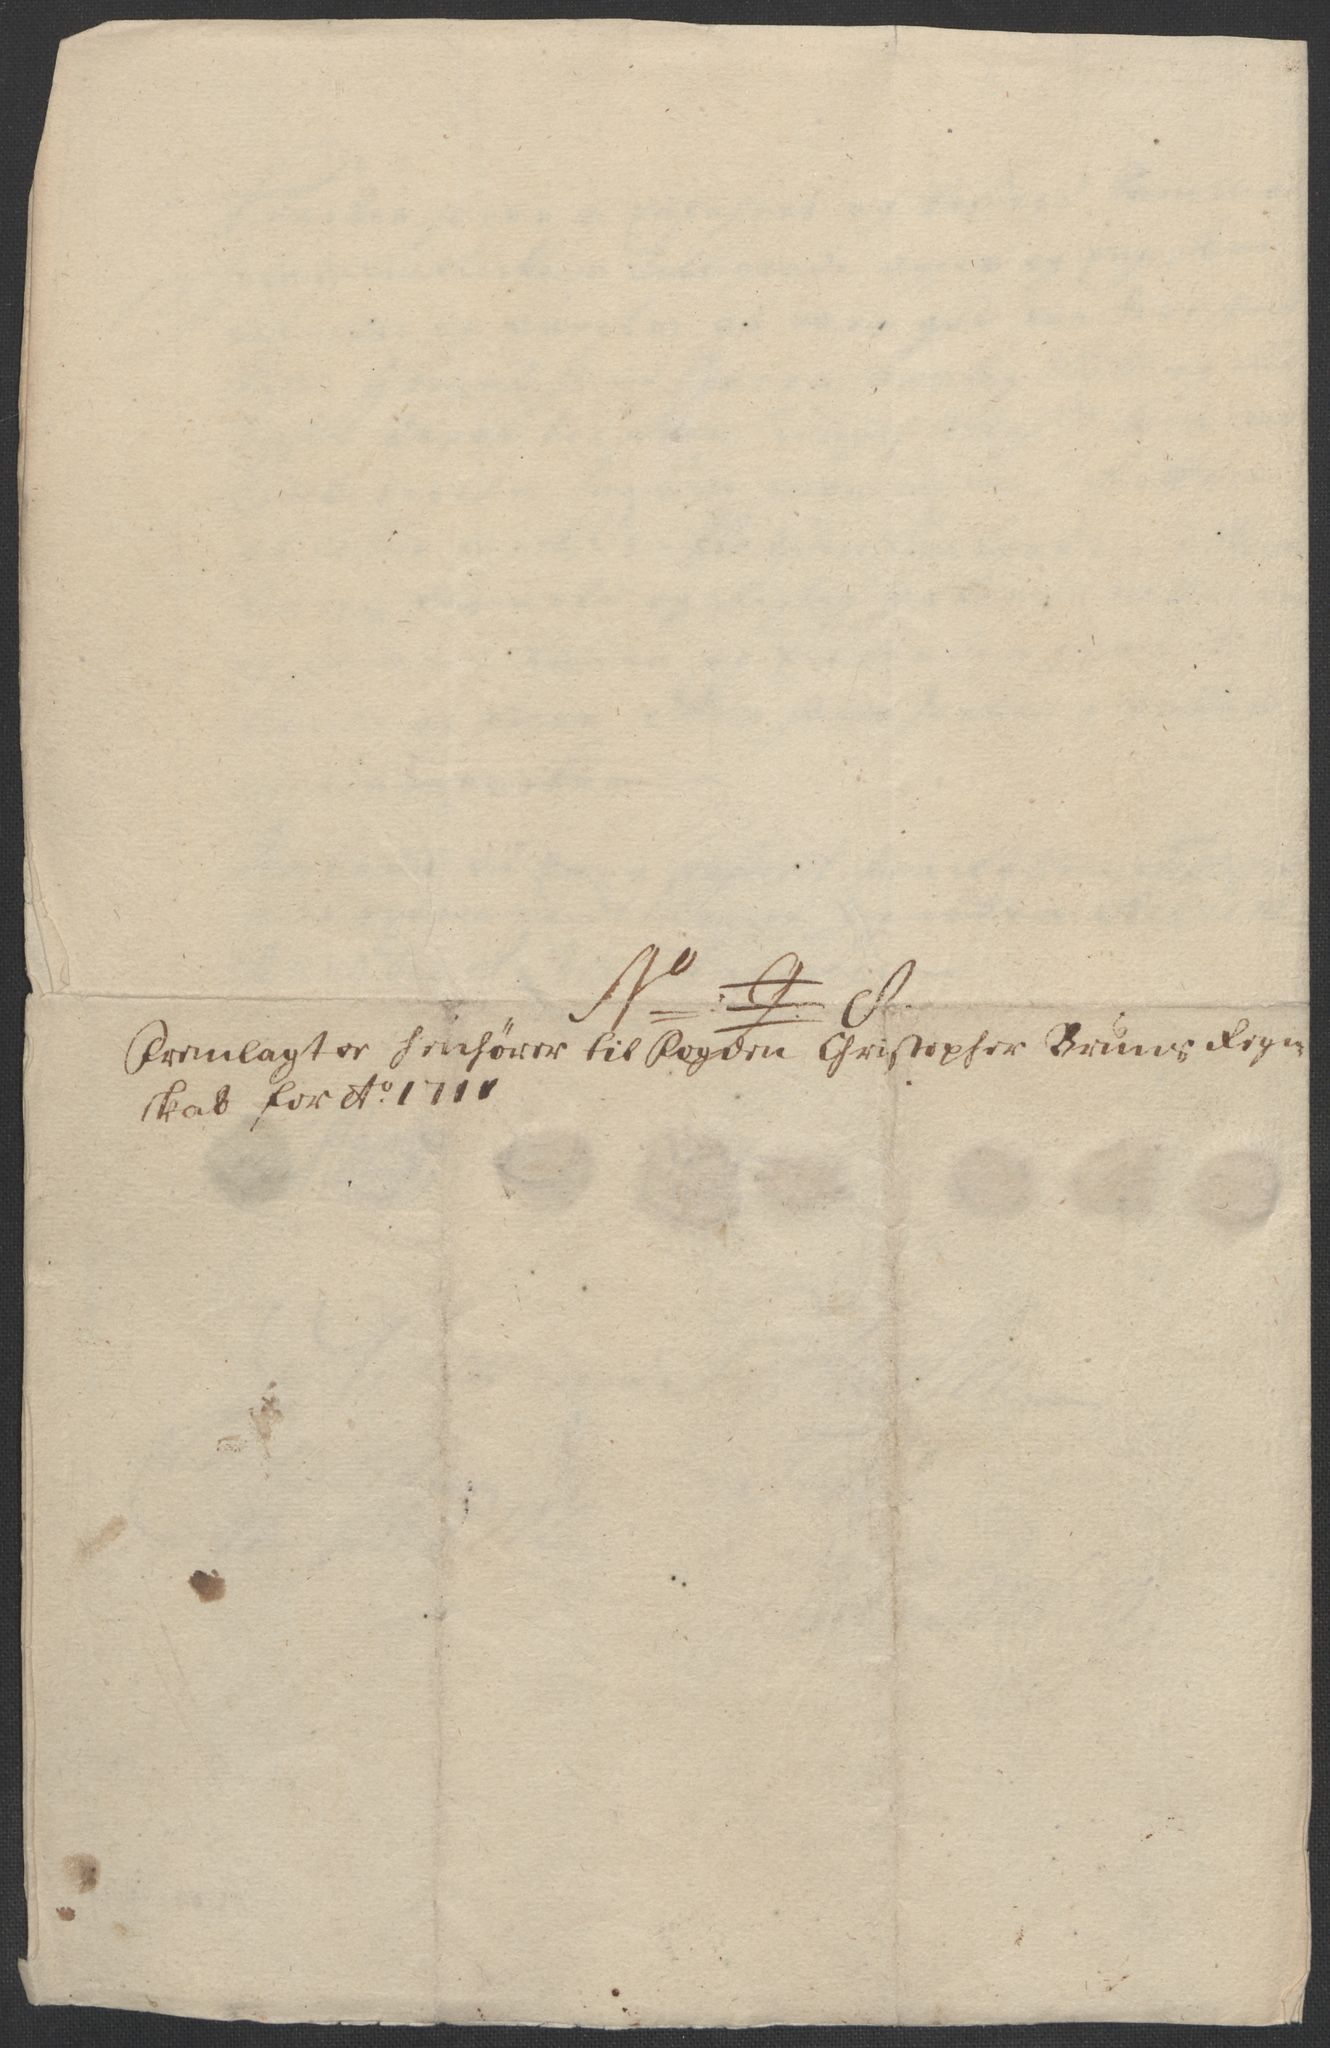 No 9 8
Fremlagt er henhører til Fogden Christopher Bruuns Regn
skab for Ao 1711